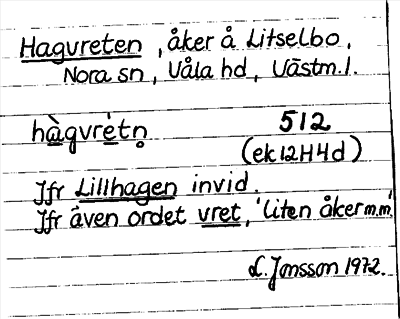 Hagvreten, åker å Litselbo,
Nora sn, Våla hd, Västm. l.
hàgvrètn̥ 512
(ek 12H4d)
Jfr Lillhagen invid.
Jfr även ordet vret, 'liten åker m.m.'
L. Jonsson 1972.